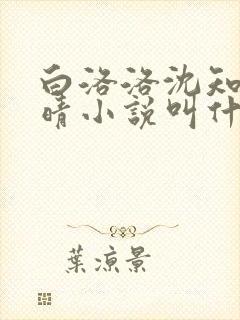 白洛洛沈知
晴小說叫什
葉涼景